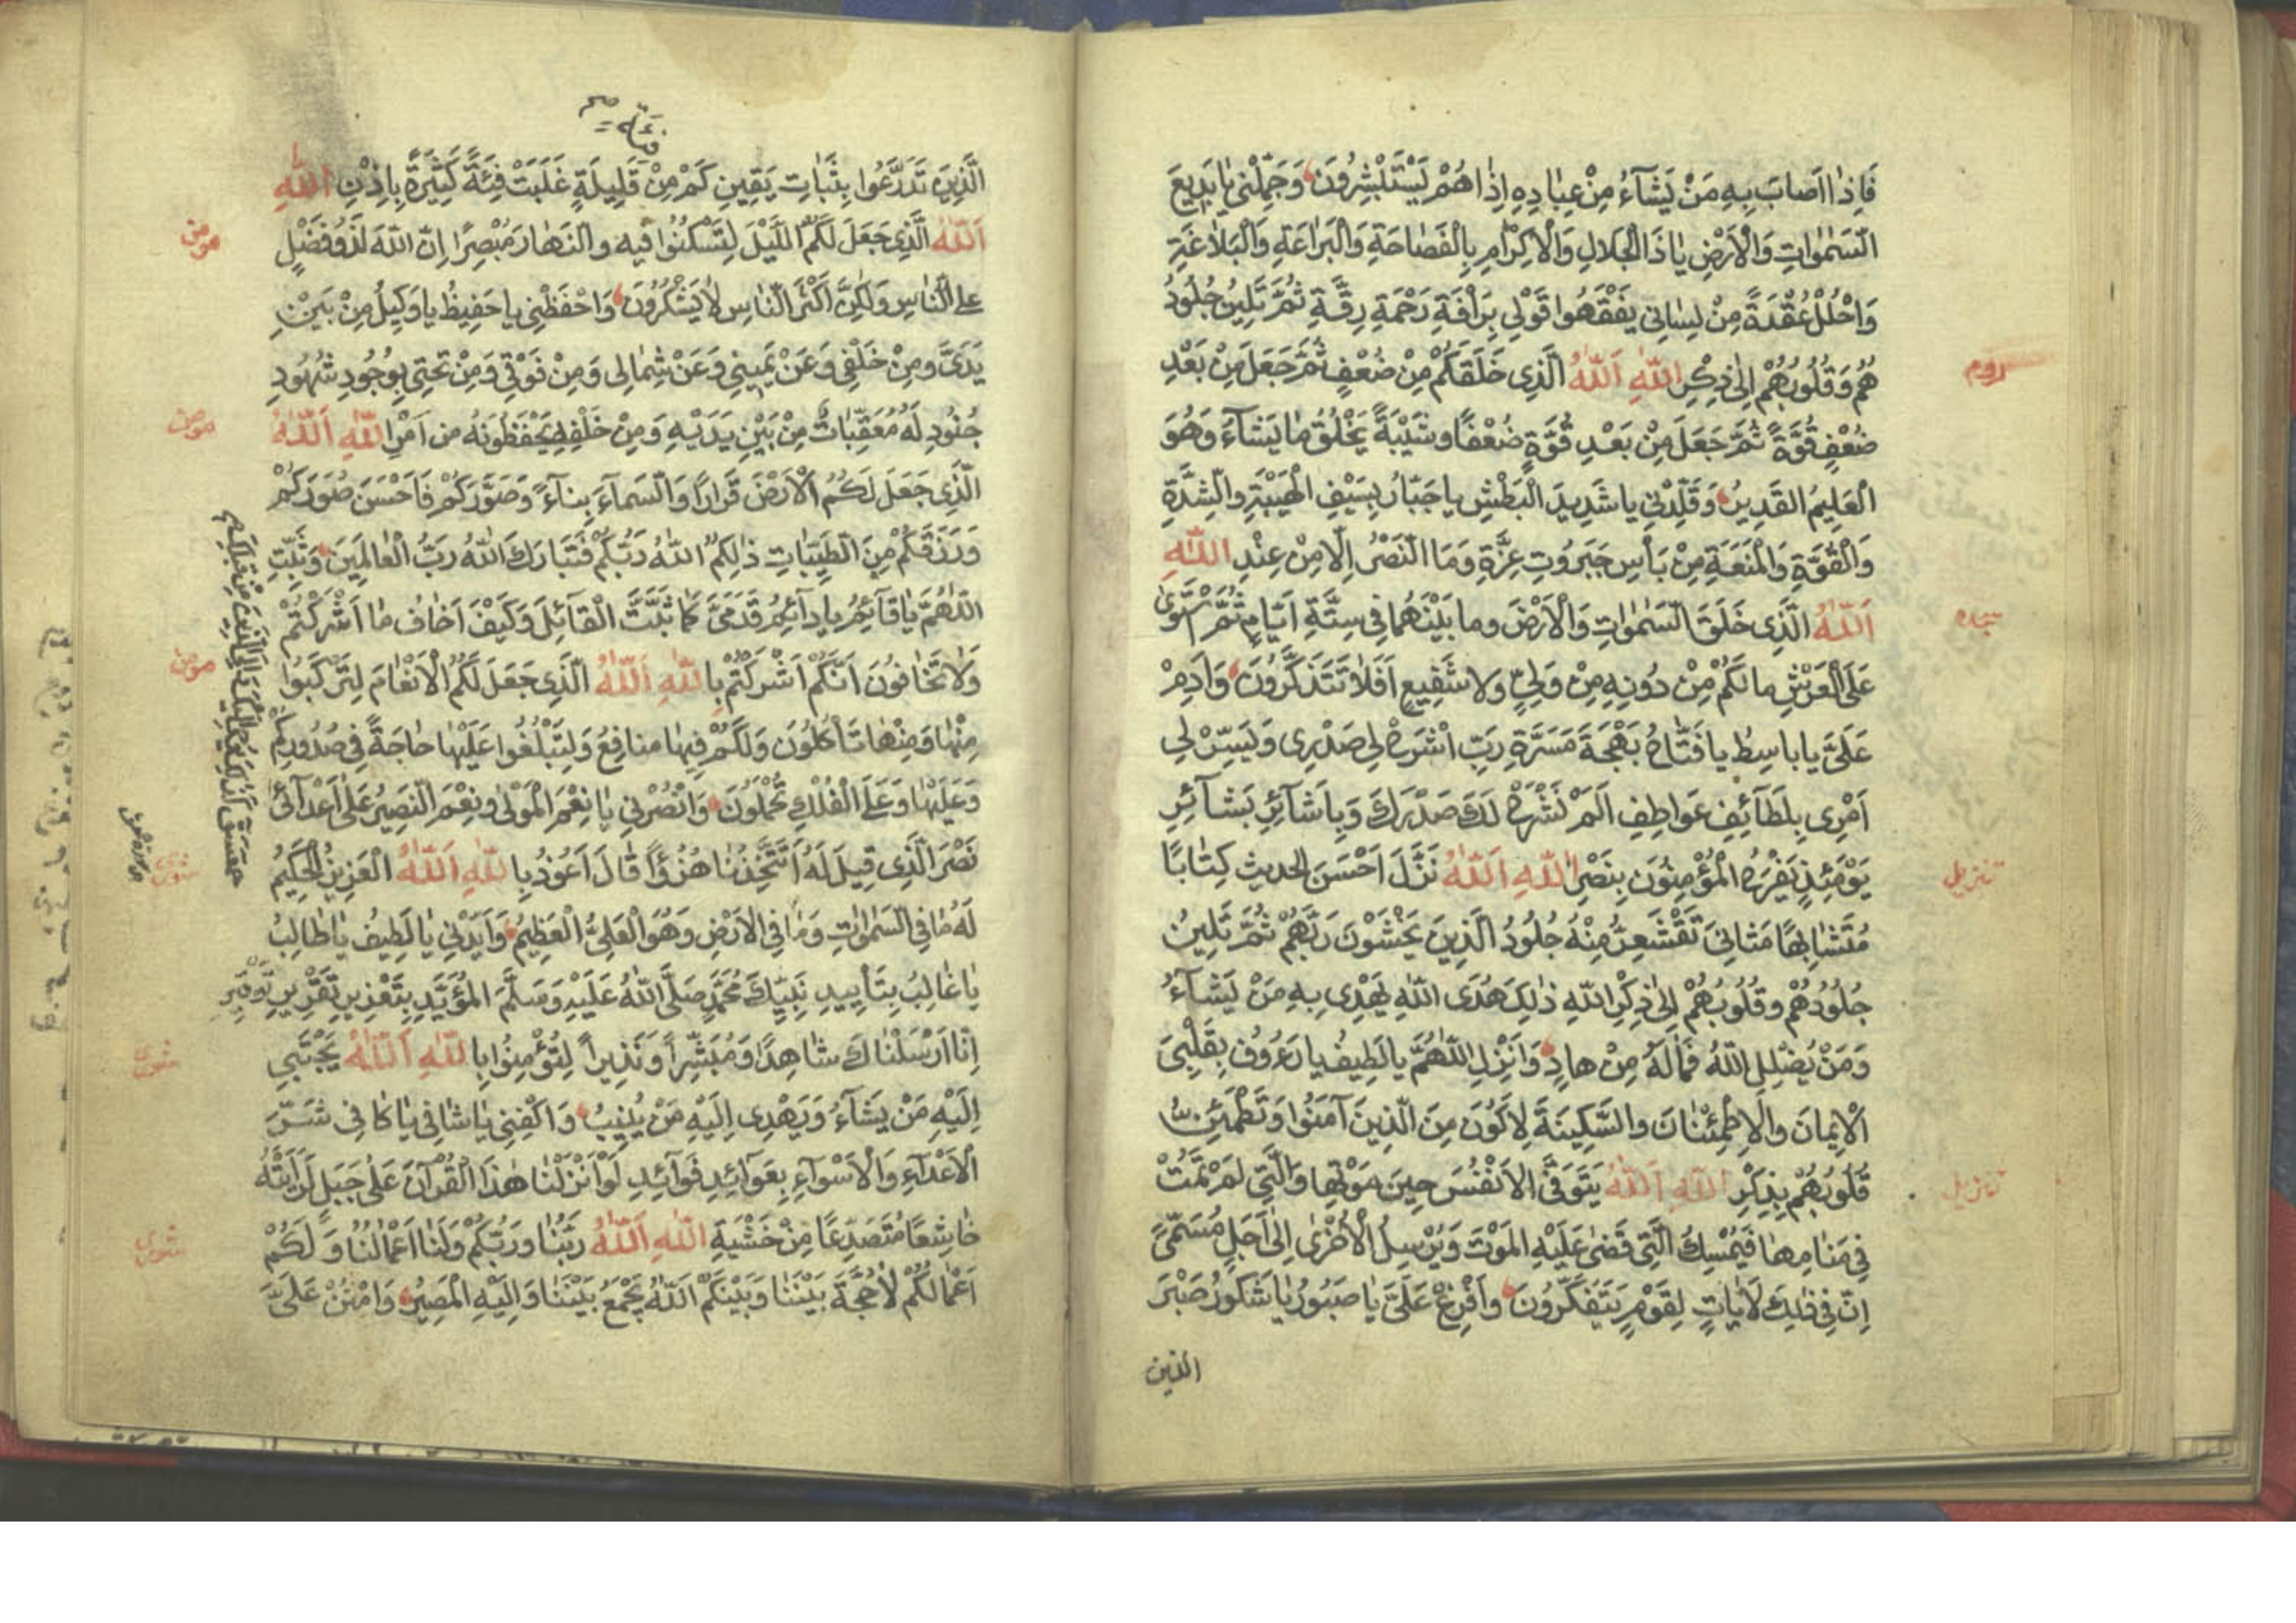 فَاِذٰا اَصابَ بِهِ مَنْ يَشآءُ مِنْ عِبٰادِهِ اِذٰا هُمْ يَسْتَبْشِرُونَ وَجَمِّلْنى يٰا بَدِيعَ
السَّمٰوٰاتِ وَالْاَرْضِ يٰا ذَا الْجَلالِ وَالْاِكْرٰامِ بِالْفَصٰاحَةِ وَالْبَرٰاعَةِ وَالْبَلٰاغَةِ
وَاحْلُلْ عُقْدَةً مِنْ لِسٰانى يَفْقَهُوا قَوْلى بِرَاْفَةِ رَحْمَةِ رِقَّةِ ثُمَّ تَلِينُ جُلُودُ
هُمْ وَقُلُوبُهُمْ اِلىٰ ذِكْرِ اللّٰهِ اَللّٰهُ الَّذِى خَلَقَكُمْ مِنْ ضُعْفٍ ثُمَّ جَعَلَ مِنْ بَعْدِ
روم
ضُعْفٍ قُوَّةً ثُمَّ جَعَلَ مِنْ بَعْدِ قُوَّةٍ ضُعْفًا وشَيْبَةً يَخْلُقُ مٰا يَشآءُ وَهُوَ
الْعَلِيمُ القَدِيرُ وَقَلِّدْنى يا شَدِيدَ الْبَطْشِ يا جَبّارُ بِسَيْفِ الْهَيْبَةِ والشِّدَّةِ
وَالْقُوَّةِ وَالْمَنَعَةِ مِنْ بَأْسِ جَبَرُوتِ عِزَّةِ وَمَا النَّصْرُ اِلّا مِنْ عِنْدِ اللّٰهِ
اَللّٰهُ الَّذِى خَلَقَ السَّمٰوٰاتِ وَالْاَرْضَ وما بَيْنَهُمٰا فِى سِتَّةِ اَيّامٍ ثُمَّ اسْتَوٰى
سجده
عَلَى الْعَرْشِ ما لَكُمْ مِنْ دُونِهِ مِنْ وَلِىٍّ ولا شَفِيعٍ اَفَلٰا تَتَذَكَّرُونَ وَاَدِمْ
عَلَىَّ يا باسِطُ يا فَتّٰاحُ بَهْجَةَ مَسَرَّةِ رَبِّ اشْرَحْ لِى صَدْرِى وَيَسِّرْ لِى
اَمْرِى بِلَطٰآئِفِ عَواطِفِ اَلَمْ نَشْرَحْ لَكَ صَدْرَكَ وَبِاَشٰآئِرِ بَشٰآئِرِ
يَوْمَئِذٍ يَفْرَحُ الْمُؤْمِنُونَ بِنَصْرِ اللّٰهِ اَللّٰهُ نَزَّلَ اَحْسَنَ الحديثِ كِتٰابًا
تنزيل
مُتَشٰابِهًا مَثٰانِىَ تَقْشَعِرُّ مِنْهُ جُلُودُ الَّذِينَ يَخْشَوْنَ رَبَّهُمْ ثُمَّ تَلِينُ
جُلُودُهُمْ وقُلُوبُهُمْ اِلىٰ ذِكْرِ اللّٰهِ ذٰلِكَ هُدَى اللّٰهِ يَهْدِى بِهِ مَنْ يَشٰآءُ
وَمَنْ يُضْلِلِ اللّٰهُ فَمٰا لَهُ مِنْ هادٍ وَاَنْزِلِ اللّٰهُمَّ يا لَطِيفُ يا رَءُوفُ بِقَلْبِىَ
الْاِيمٰانَ والْاِطْمِئْنٰانَ والسَّكِينَةَ لِاَكُونَ مِنَ الَّذِينَ آمَنُوا وَتَطْمَئِنُّ
قُلُوبُهُمْ بِذِكْرِ اللّٰهِ اَللّٰهُ يَتَوَفَّى الْاَنْفُسَ حِينَ مَوْتِهٰا وَالَّتِى لَمْ تَمُتْ
تنزيل
فِى مَنٰامِهٰا فَيُمْسِكُ الَّتِى قَضىٰ عَلَيْهِ الْمَوْتَ وَيُرْسِلُ الْاُخْرىٰ اِلىٰ اَجَلٍ مُسَمًّى
اِنَّ فِى ذٰلِكَ لَاٰيٰاتٍ لِقَوْمٍ يَتَفَكَّرُونَ وَاَفْرِغْ عَلَىَّ يٰا صَبُورُ يٰا شَكُورُ صَبْرَ
الذين
فئة صح
الَّذِينَ تَدَرَّعُوا بِثَبٰاتِ يَقِينِ كَمْ مِنْ قَلِيلَةٍ غَلَبَتْ فِئَةً كَثِيرَةً بِاِذْنِ اللّٰهِ
اَللّٰهُ الَّذِى جَعَلَ لَكُمُ اللَّيْلَ لِتَسْكُنُوا فيه والنَّهٰارَ مُبْصِرًا اِنَّ اللّٰهَ لَذُو فَضْلٍ
مؤمن
على النّٰاسِ وَلٰكِنَّ اَكْثَرَ النّٰاسِ لٰا يَشْكُرُونَ وَاحْفَظْنِى يا حَفِيظُ يا وَكِيلُ مِنْ بَيْنِ
يَدَىَّ ومِنْ خَلْفِى وَعَنْ يَمِينِى وَعَنْ شِمٰالِى وَمِنْ فَوْقِى وَمِنْ تَحْتِى بِوُجُودِ شُهُودِ
جُنُودِ لَهُ مُعَقِّبٰاتٌ مِنْ بَيْنِ يَدَيْهِ وَمِنْ خَلْفِهِ يَحْفَظُونَهُ من اَمْرِ اللّٰهِ اَللّٰهُ
مؤمن
الَّذِى جَعَلَ لَكُمُ الْاَرْضَ قَرٰارًا وَالسَّمٰآءَ بِنٰآءً وَصَوَّرَكُمْ فَاَحْسَنَ صُوَرَكُمْ
وَرَزَقَكُمْ مِنَ الطَّيِّبٰاتِ ذٰلِكُمُ اللّٰهُ رَبُّكُمْ فَتَبٰارَكَ اللّٰهُ رَبُّ الْعٰالَمِينَ وَثَبِّتِ
اللّٰهُمَّ يٰا قٰآئِمُ يا دٰآئِمُ قَدَمَىَّ كَمٰا ثَبَّتَّ الْقٰآئِلَ وَكَيْفَ اَخٰافُ مٰا اَشْرَكْتُمْ
وَلٰا تَخٰافُونَ اَنَّكُمْ اَشْرَكْتُمْ بِاللّٰهِ اَللّٰهُ الَّذِى جَعَلَ لَكُمُ الْاَنْعٰامَ لِتَرْكَبُوا
مؤمن
مِنْهٰا وَمِنْهٰا تَأْكُلُونَ وَلَكُمْ فِيهٰا منٰافِعُ وَلِتَبْلُغُوا عَلَيْهٰا حٰاجَةً فِى صُدُورِكُمْ
وَعَلَيْهٰا وَعَلَى الْفُلْكِ تُحْمَلُونَ وَانْصُرْنِى يٰا نِعْمَ الْمَوْلىٰ ونِعْمَ النَّصِيرُ عَلىٰ اَعْدٰآئِى
نَصْرَ الَّذِى قِيلَ لَهُ اَتَتَّخِذُنٰا هُزُوًا قٰالَ اَعُوذُ بِاللّٰهِ اَللّٰهُ الْعَزِيزُ الْحَكِيمُ
شورى
لَهُ مٰا فِى السَّمٰوٰاتِ وَمٰا فِى الْاَرْضِ وَهُوَ الْعَلِىُّ الْعَظِيمُ وَاَيِّدْنِى يٰا لَطِيفُ يٰا طٰالِبُ
يٰا غٰالِبُ بِتَأْيِيدِ نَبِيِّكَ مُحَمَّدٍ صَلَّى اللّٰهُ عَلَيْهِ وَسَلَّمَ الْمُؤَيَّدِ بِتَعْزِيزِ تَقْرِيرِ تَوْقِيرِ
اِنّٰا اَرْسَلْنٰاكَ شٰاهِدًا وَمُبَشِّرًا وَنَذِيراً لِتُؤْمِنُوا بِاللّٰهِ اَللّٰهُ يَجْتَبِى
شورى
اِلَيْهِ مَنْ يَشٰآءُ وَيَهْدِى اِلَيْهِ مَنْ يُنِيبُ وَاكْفِنِى يٰا شٰافِى يٰا كٰافِى شَرَّ
الْاَعْدٰآءِ وَالْاَسْوٰآءِ بِعَوٰآئِدِ فَوٰآئِدِ لَوْ اَنْزَلْنٰا هٰذَا الْقُرْآنَ عَلىٰ جَبَلٍ لَرَاَيْتَهُ
خٰاشِعًا مُتَصَدِّعًا مِنْ خَشْيَةِ اللّٰهِ اَللّٰهُ رَبُّنٰا ورَبُّكُمْ وَلَنٰا اَعْمٰالُنٰا وَلَكُمْ
شورى
اَعْمٰالُكُمْ لٰا حُجَّةَ بَيْنَنٰا وَبَيْنَكُمُ اَللّٰهُ يَجْمَعُ بَيْنَنٰا وَاِلَيْهِ الْمَصِيرُ وَامْنُنْ عَلَىَّ